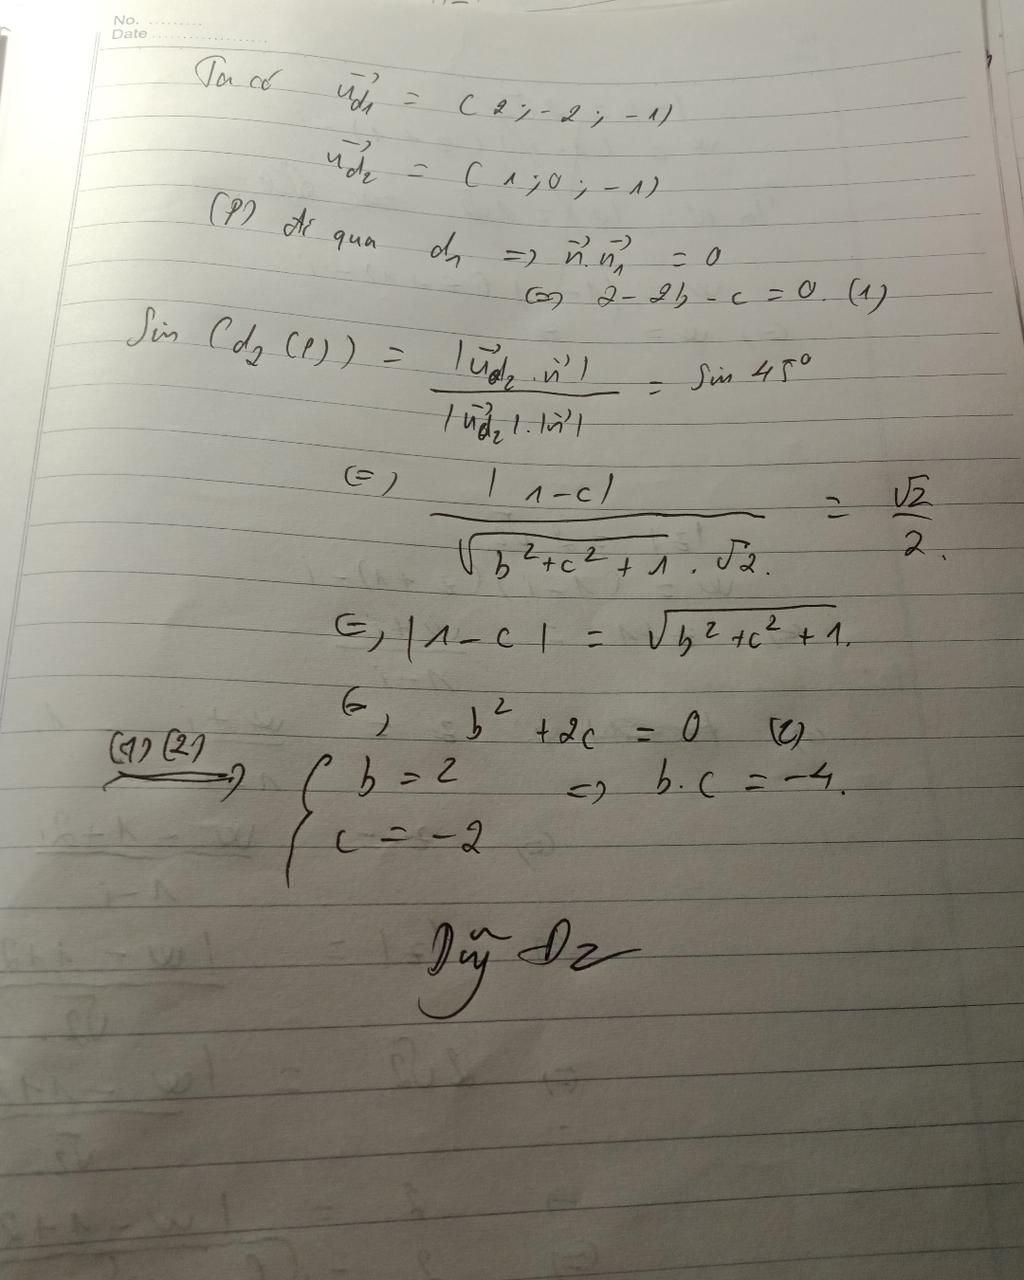 No. ..........
Date ......................
Ta có \vec{u_{d_1}} = (2 ; -2 ; -1)
\vec{u_{d_2}} = (1 ; 0 ; -1)
(P) đi qua d_1 => \vec{n}.\vec{n_1} = 0
<=> 2 - 2b - c = 0. (1)
Sin (d_2 (P)) = \frac{|\vec{u_{d_2}} . \vec{n}|}{|\vec{u_{d_2}}|.|\vec{n}|} = Sin 45°
<=> \frac{|1-c|}{\sqrt{b^2+c^2+1} . \sqrt{2}.} = \frac{\sqrt{2}}{2}.
<=> |1-c| = \sqrt{b^2+c^2+1}.
<=> b^2 + 2c = 0 (2)
(1) (2) => { b = 2 => b.c = -4.
c = -2